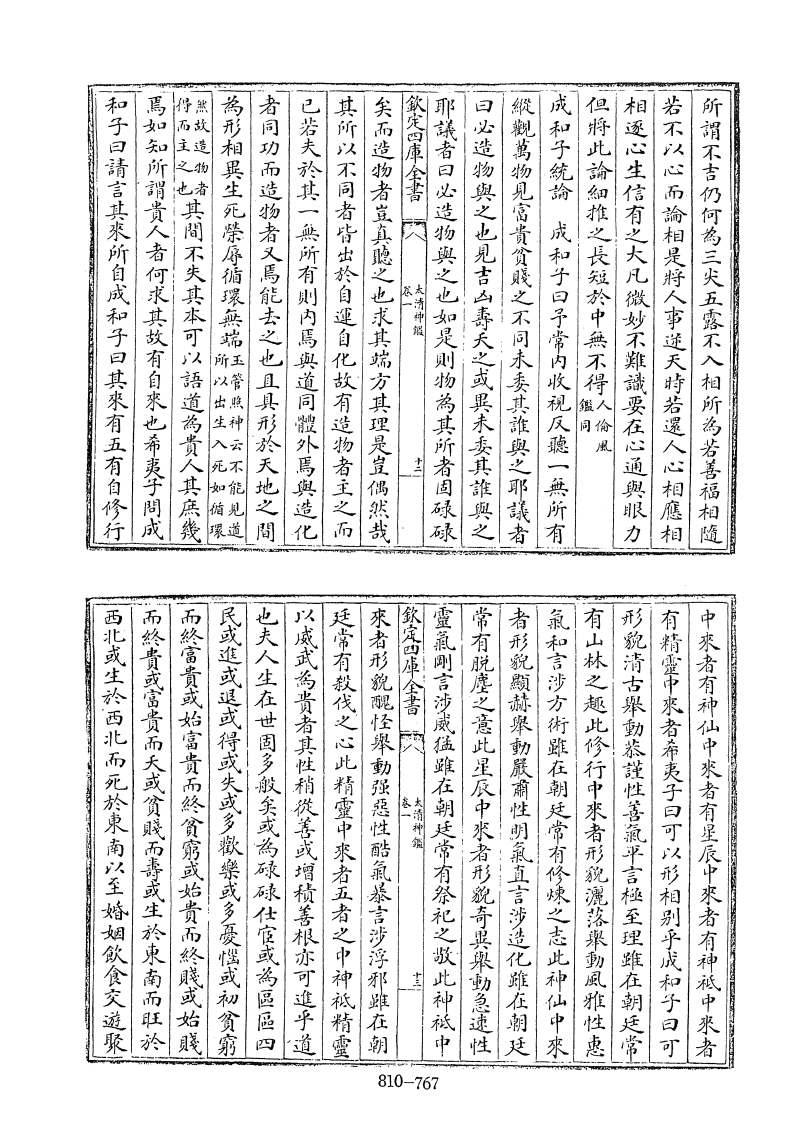 所謂不吉仍何為三尖五露不入相所為若善福相隨
若不以心而論相是將人事逆天時若還人心相應相
相逐心生信有之大凡微妙不難識要在心通與眼力
但將此論細推之長短於中無不得人倫風鑑同
成和子統論　成和子曰予常內收視反聽一無所有
縱觀萬物見富貴貧賤之不同未委其誰與之耶議者
曰必造物與之也見吉凶壽夭之或異未委其誰與之
耶議者曰必造物與之也如是則物為其所者固碌碌
欽定四庫全書
太清神鑑
卷一
十二
矣而造物者豈真聽之也求其端方其理是豈偶然哉
其所以不同者皆出於自運自化故有造物者主之而
已若夫於其一無所有則內焉與道同體外焉與造化
者同功而造物者又焉能去之也且具形於天地之間
為形相異生死榮辱循環無端玉管照神云不能見道所以出生入死如循環
然故造物者得而主之也其間不失其本可以語道為貴人其庶幾
焉如知所謂貴人者何求其故有自來也希夷子問成
和子曰請言其來所自成和子曰其來有五有自修行
中來者有神仙中來者有星辰中來者有神祗中來者
有精靈中來者希夷子曰可以形相別乎成和子曰可
形貌清古舉動恭謹性善氣平言極至理雖在朝廷常
有山林之趣此修行中來者形貌灑落舉動風雅性惠
氣和言涉方術雖在朝廷常有修煉之志此神仙中來
者形貌顯赫舉動嚴肅性明氣直言涉造化雖在朝廷
常有脱塵之意此星辰中來者形貌奇異舉動急速性
靈氣剛言涉威猛雖在朝廷常有祭祀之敬此神祗中
欽定四庫全書
太清神鑑
卷一
十三
來者形貌醜怪舉動强惡性酷氣暴言涉浮邪雖在朝
廷常有殺伐之心此精靈中來者五者之中神祗精靈
以威武為貴者其性稍從善或增積善根亦可進乎道
也夫人生在世固多般矣或為碌碌仕宦或為區區四
民或進或退或得或失或多歡樂或多憂惱或初貧窮
而終富貴或始富貴而終貧窮或始貴而終賤或始賤
而終貴或富貴而夭或貧賤而壽或生於東南而旺於
西北或生於西北而死於東南以至婚姻飲食交遊聚
810-767